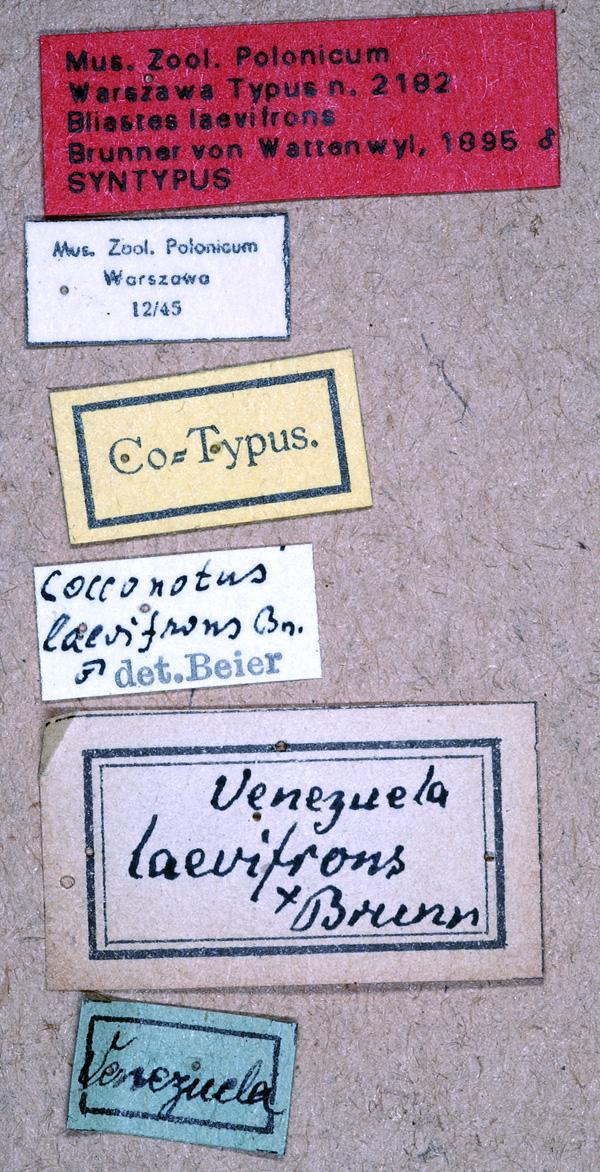 Mus. Zool. Polonicum
Warszawa Typus n. 2182
Bliastes laevifrons
Brunner von Wattenwyl, 1895 ♂
SYNTYPUS
Mus. Zool. Polonicum
Warszawa
12/45
Co=Typus.
Cocconotus
laevifrons Bn.
♂ det.Beier
Venezuela
laevifrons
× Brunn
Venezuela